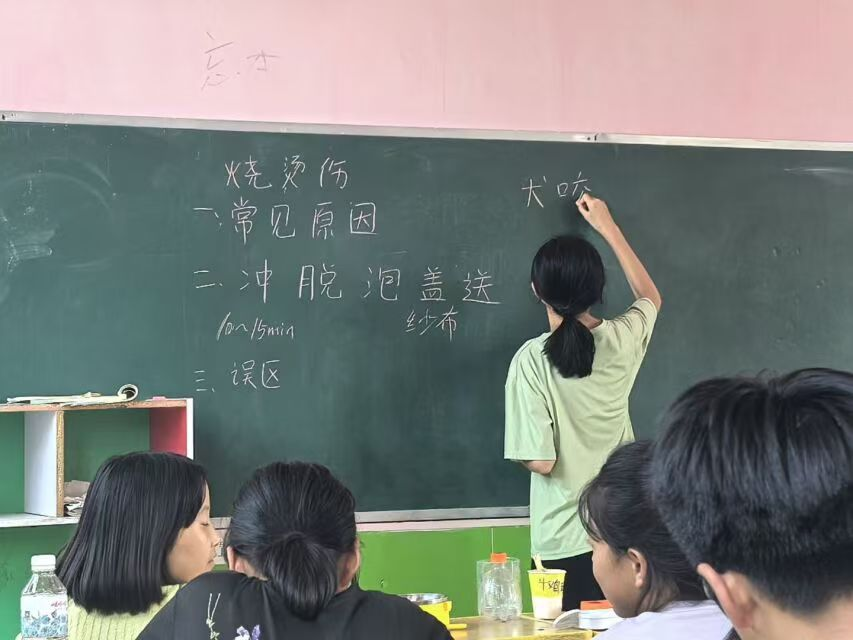 忘.
烧烫伤
一、常见原因
二、冲脱泡盖送
10~15min
纱布
三、误区
犬咬